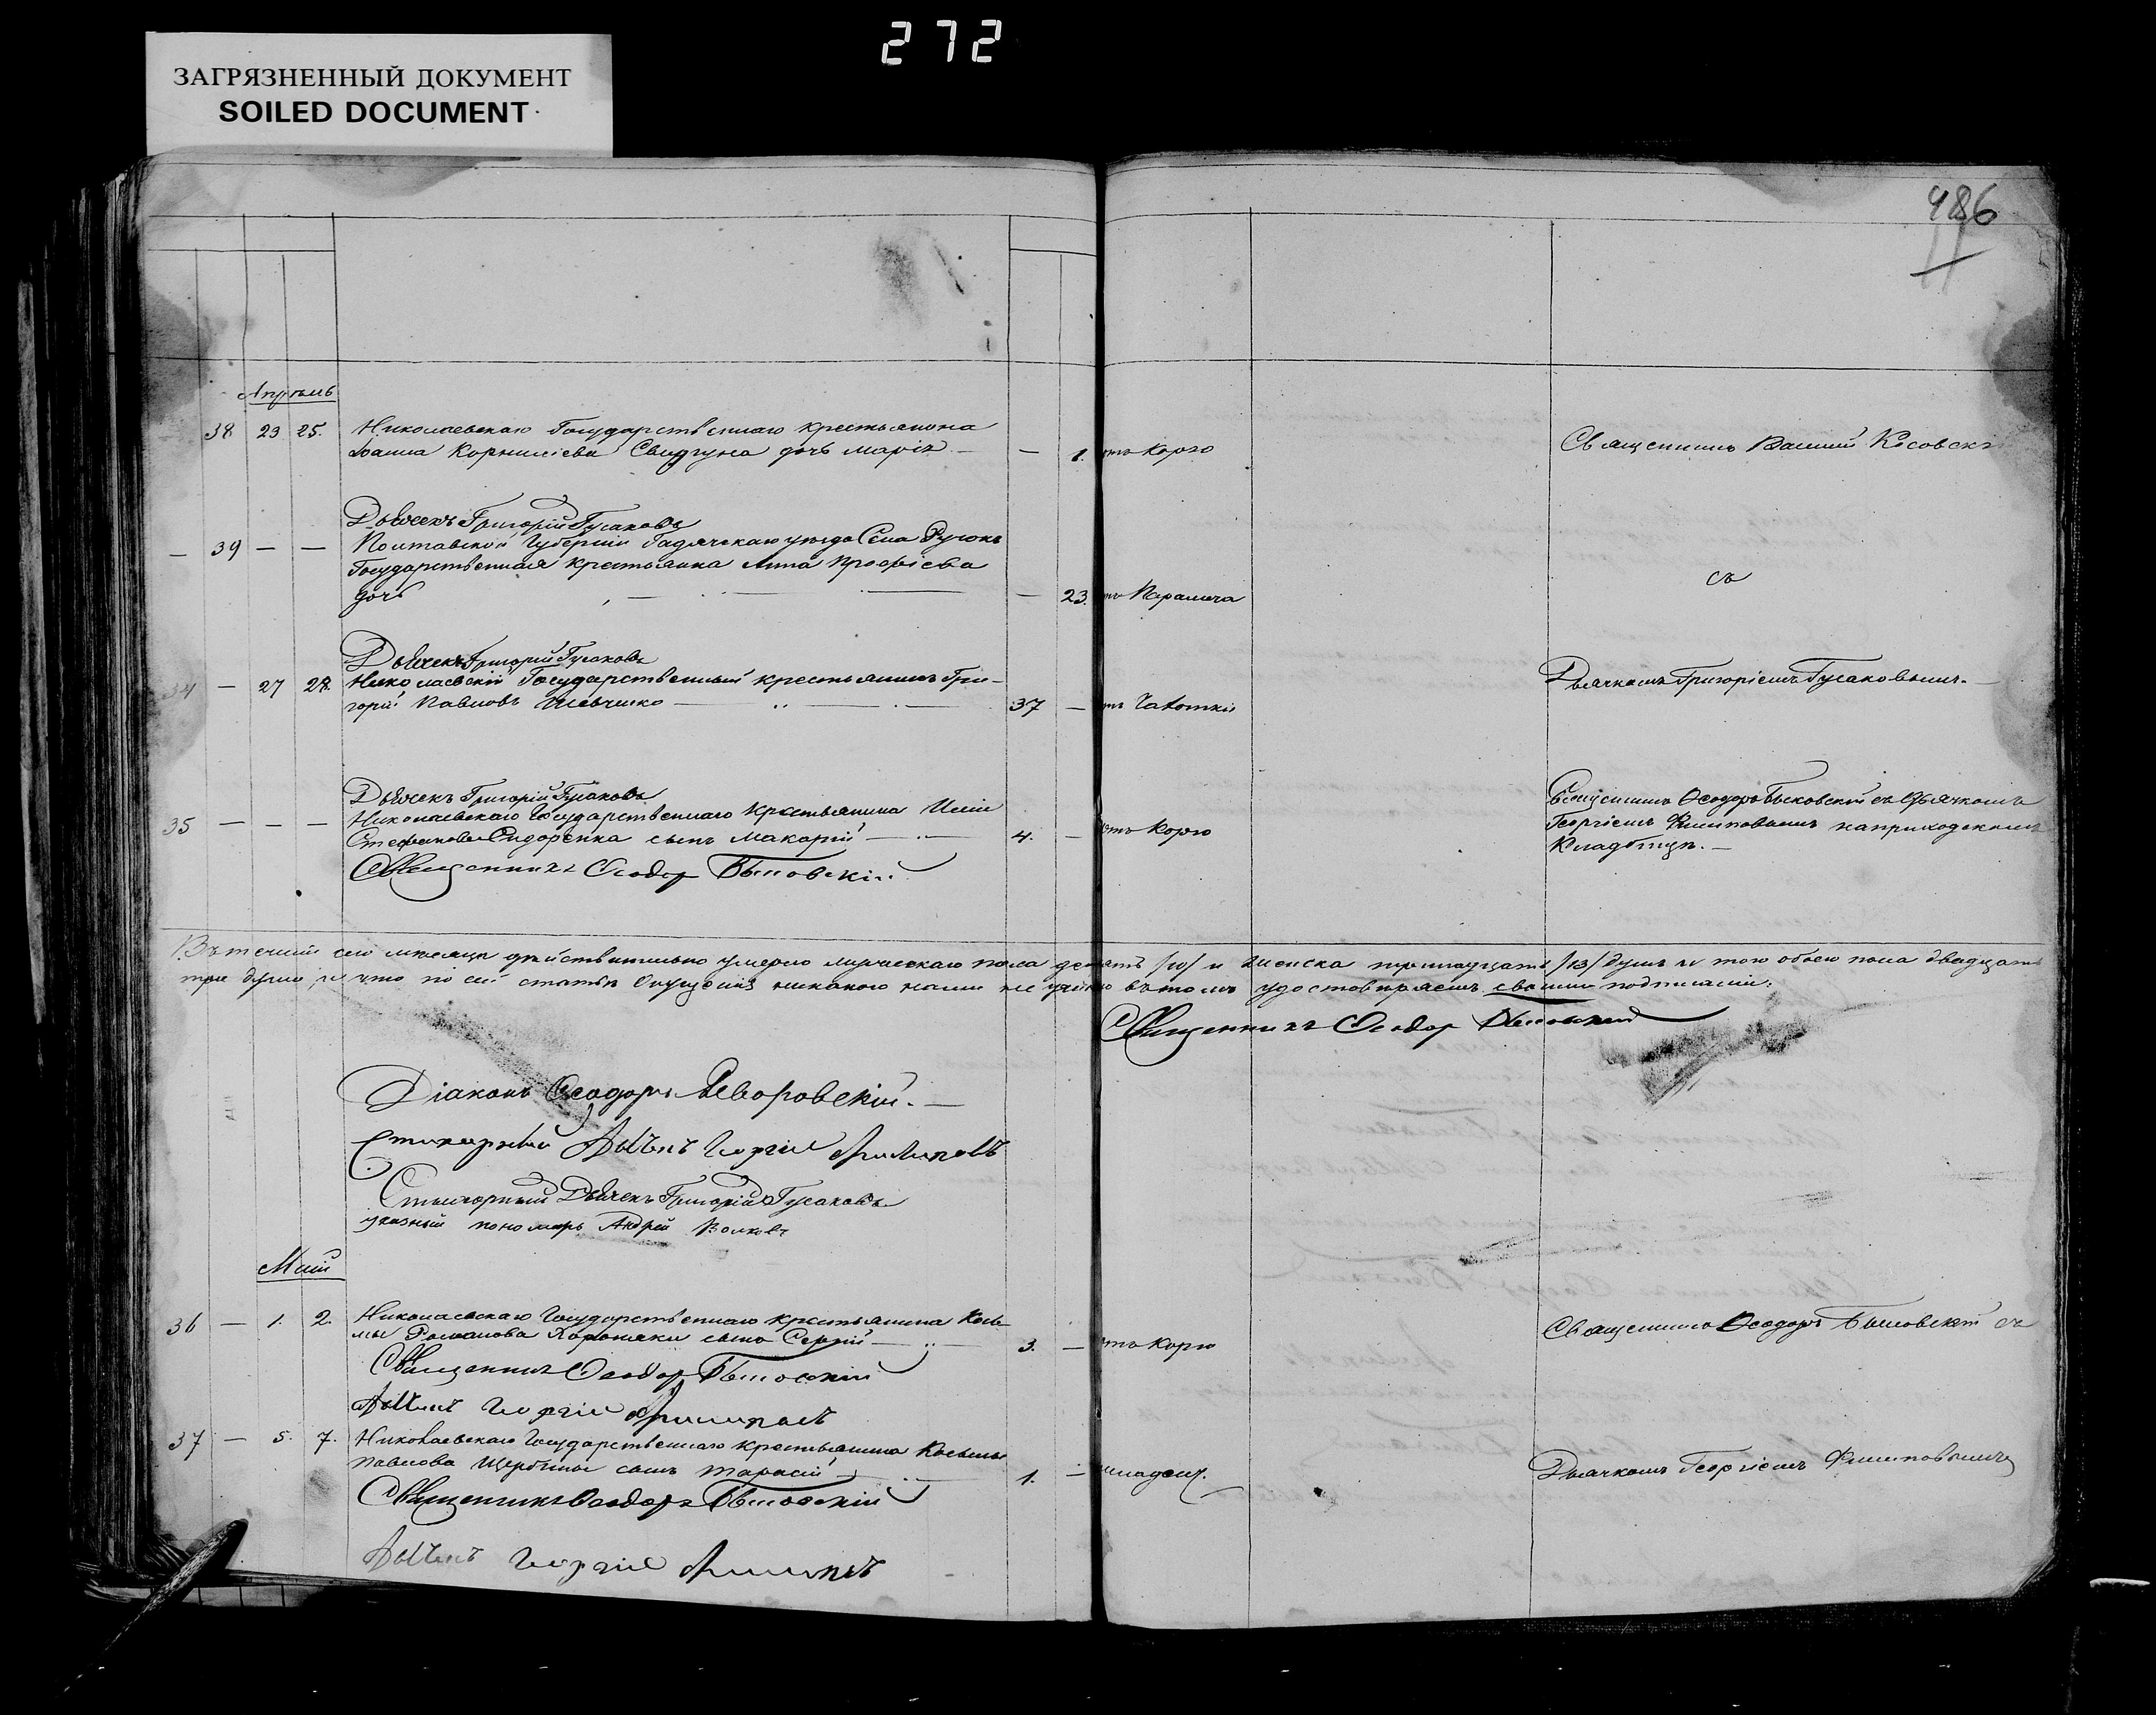 272
ЗАГРЯЗНЕННЫЙ ДОКУМЕНТ
SOILED DOCUMENT
486
Апрѣль
38 23 25. Николаевскаго Государственнаго крестьянина
Іоанна Корнилієва Свидруна дочь Марія — — 1. отъ Корю Священникъ Василій Косовскі
Дьячекъ Григорій Гусаковъ
— 39 — — Полтавской Губерніи Гадячскаго уѣзда Села
Государственная крестьянка Анна
дочь — 23. Паралича съ
Дьячекъ Григорій Гусаковъ
34 — 27 28. Николаевскій Государственный крестьянинъ Гри-
горій Павловъ Шевченко 37 — Чахотки Дьячкомъ Григоріемъ Гусаковымъ.
Дьячекъ Григорій Гусаковъ
35 — — — Николаевскаго Государственнаго Крестьянина Иліи
Стефанова Сидоренка сынъ Макарій 4. — отъ Корю
Священникъ Ѳеодоръ съ Дьячкомъ
Георгіемъ Филиповымъ на приходскомъ
Кладбищѣ.
Священникъ Ѳеодоръ
Въ теченіи сего мѣсяца дѣйствительно умерло мужескаго пола десять /10/ и женска тринадцать /13/ душъ а того обоего пола двадцать
три души, и что по сей статьѣ опущенія никакого нами не учинено въ томъ удостовѣряемъ своими подписами:
Священникъ Ѳеодоръ
Діаконъ Ѳеодоръ
Стихарный Дьячекъ Георгій Филиповъ
Стихарный Дьячекъ Григорій Гусаковъ
указный пономарь Андрей Волковъ
Май
36 — 1. 2. Николаевскаго Государственнаго крестьянина Козь-
мы Романова сынъ Сергій 3. — отъ Корю Священникъ Ѳеодоръ съ
Священникъ Ѳеодоръ
Дьячекъ Георгій Филиповъ
37 — 5. 7. Николаевскаго Государственнаго крестьянина Косьмы
Павлова Щербины сынъ Тарасій 1. — младенч. Дьячкомъ Георгіемъ Филиповымъ
Священникъ Ѳеодоръ
Дьячекъ Георгій Филиповъ